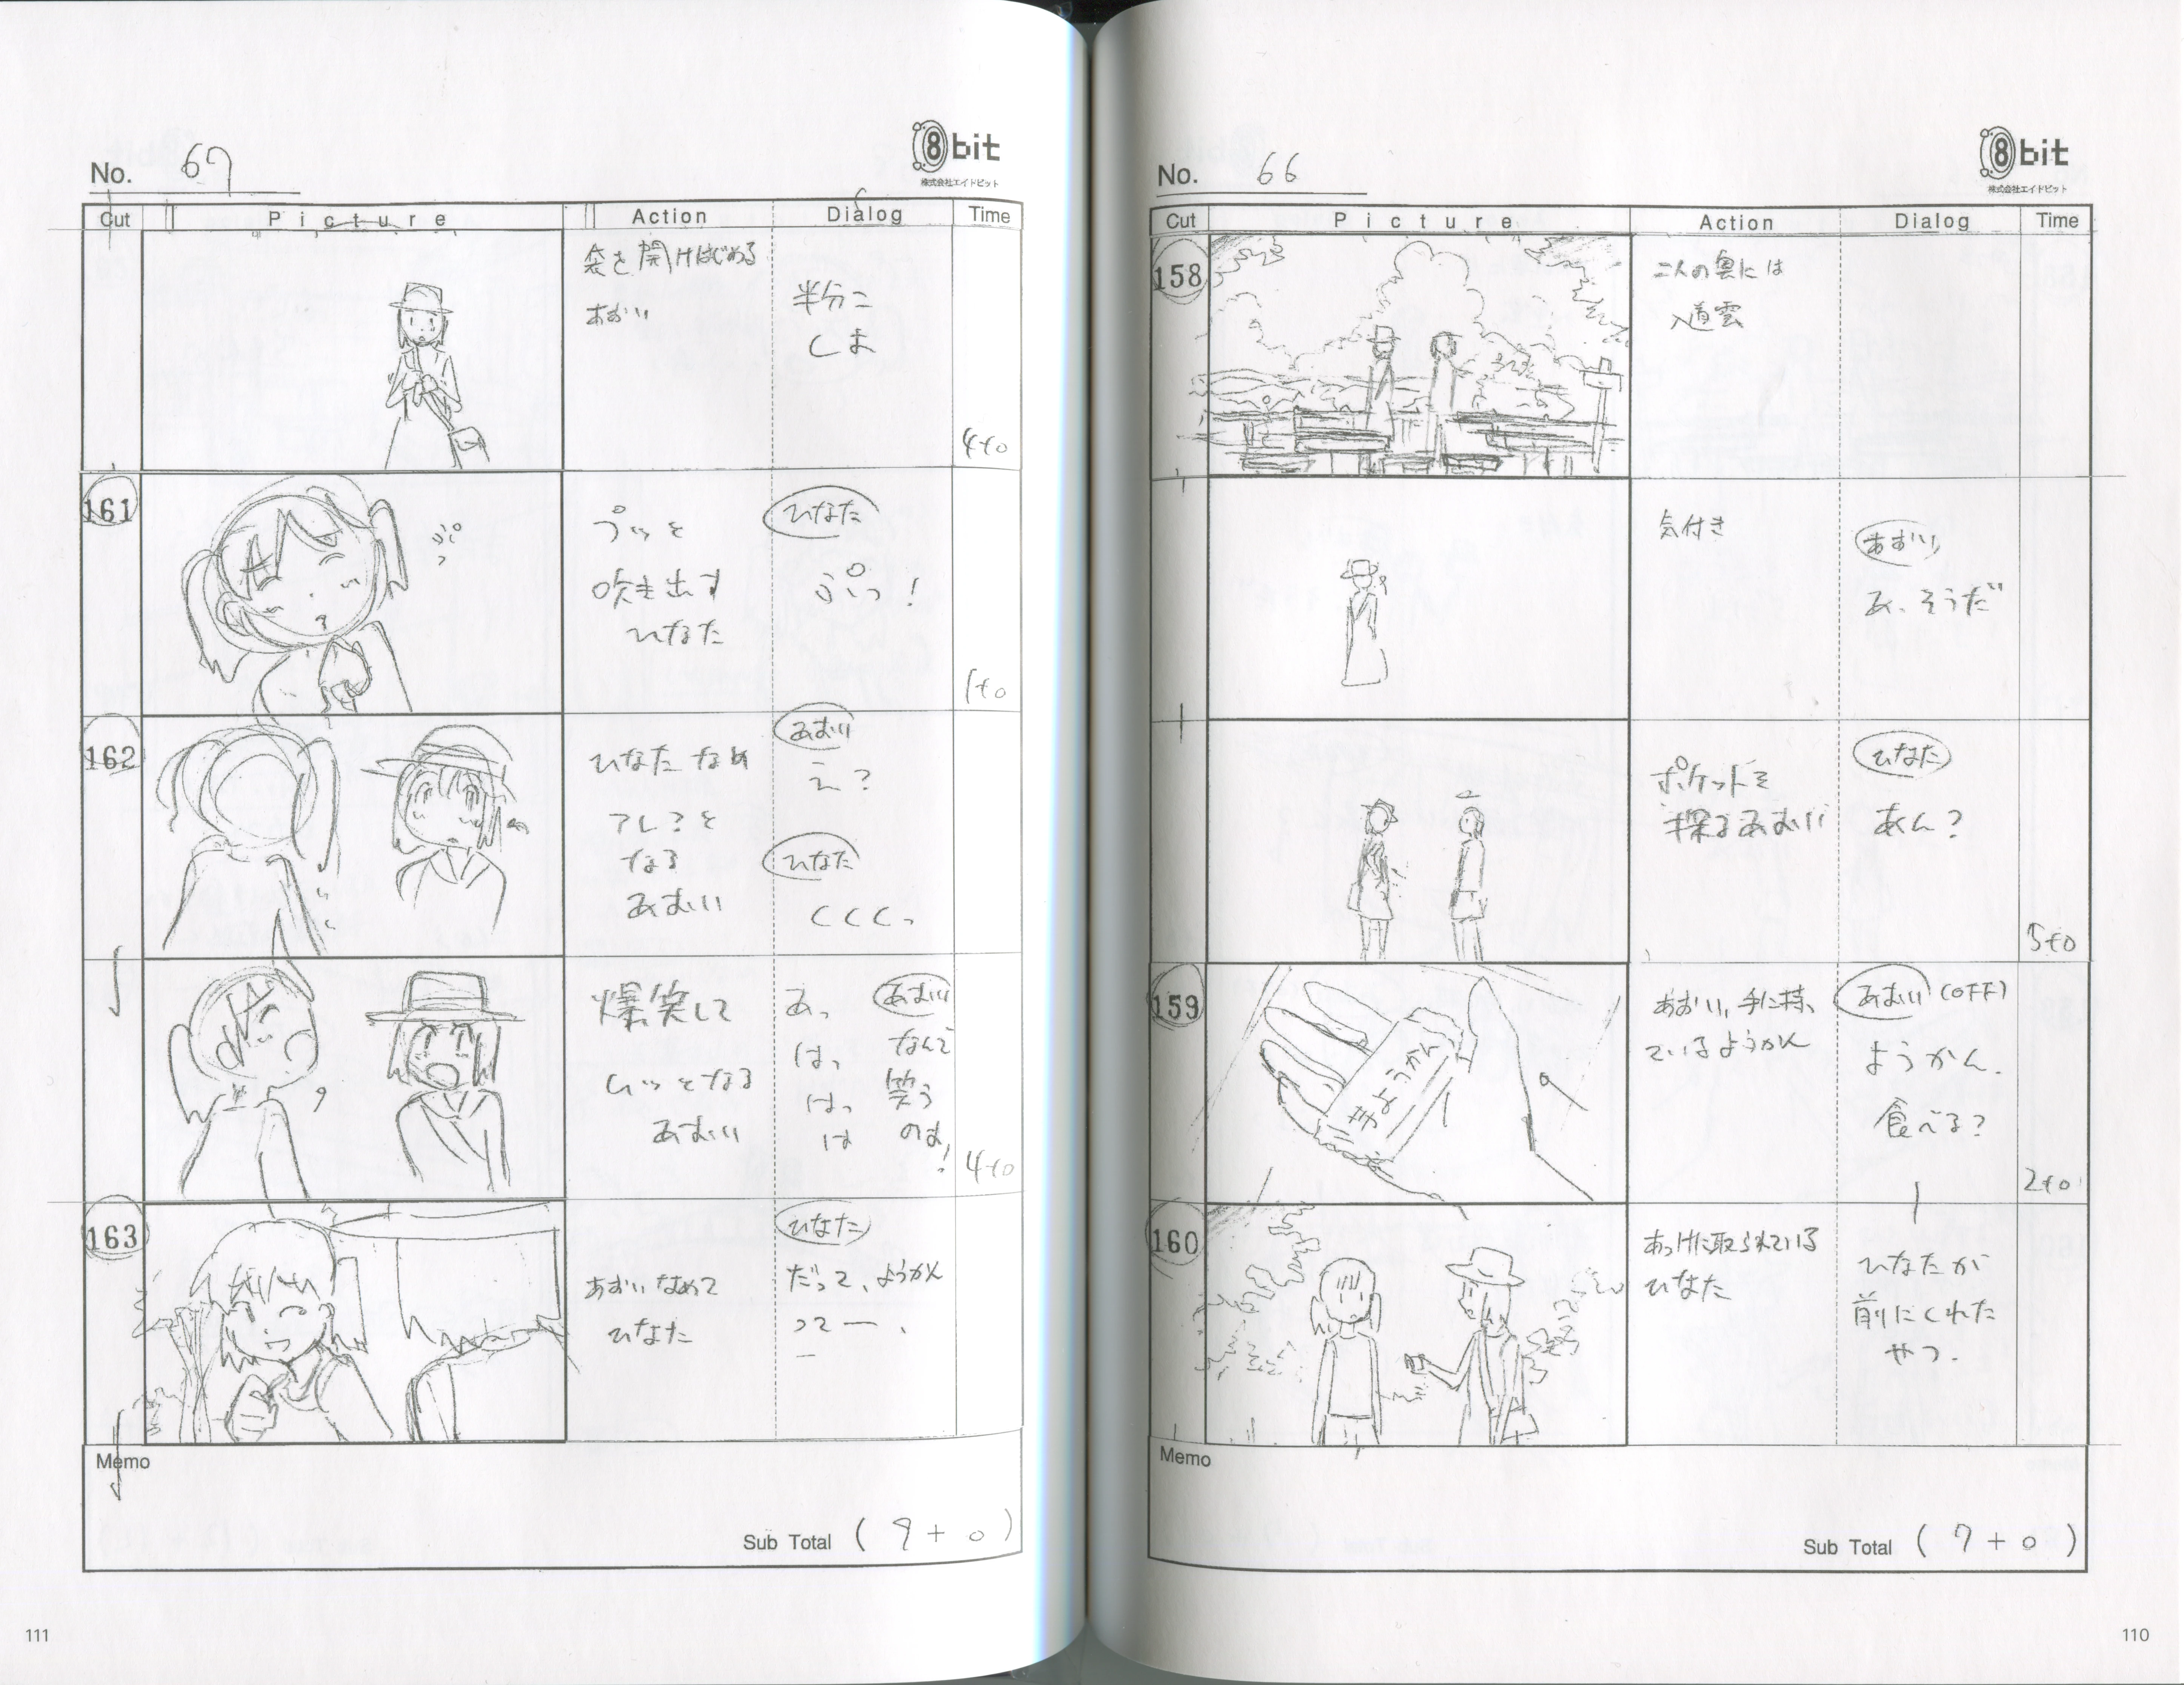 No. 66
8bit
株式会社エイトビット
Cut
Picture
Action
Dialog
Time
158
二人の奥には
入道雲
気付き
あおい
あ、そうだ
ポケットを
探るあおい
ひなた
あん?
5+0
159
あおい,手に持っ
ているようかん
きようかん
あおい (OFF)
ようかん.
食べる?
2+0
160
あっけに取られている
ひなた
ひなたが
前にくれた
やつ.
Memo
Sub Total ( 7 + 0 )
110
No. 67
8bit
株式会社エイトビット
Cut
Picture
Action
Dialog
Time
袋を開けはじめる
あおい
半分こ
しよ
4+0
161
ぷっ
プッと
吹き出す
ひなた
ひなた
ぷっ!
1+0
162
ひなたなめ
アレ?と
なる
あおい
あおい
え?
ひなた
くくくっ
爆笑して
ムッとなる
あおい
あっ
はっ
はっ
は
あおい
なんで
笑う
のよ!
4+0
163
あおいなめて
ひなた
ひなた
だって、ようかん
ってー、
Memo
Sub Total ( 9 + 0 )
111